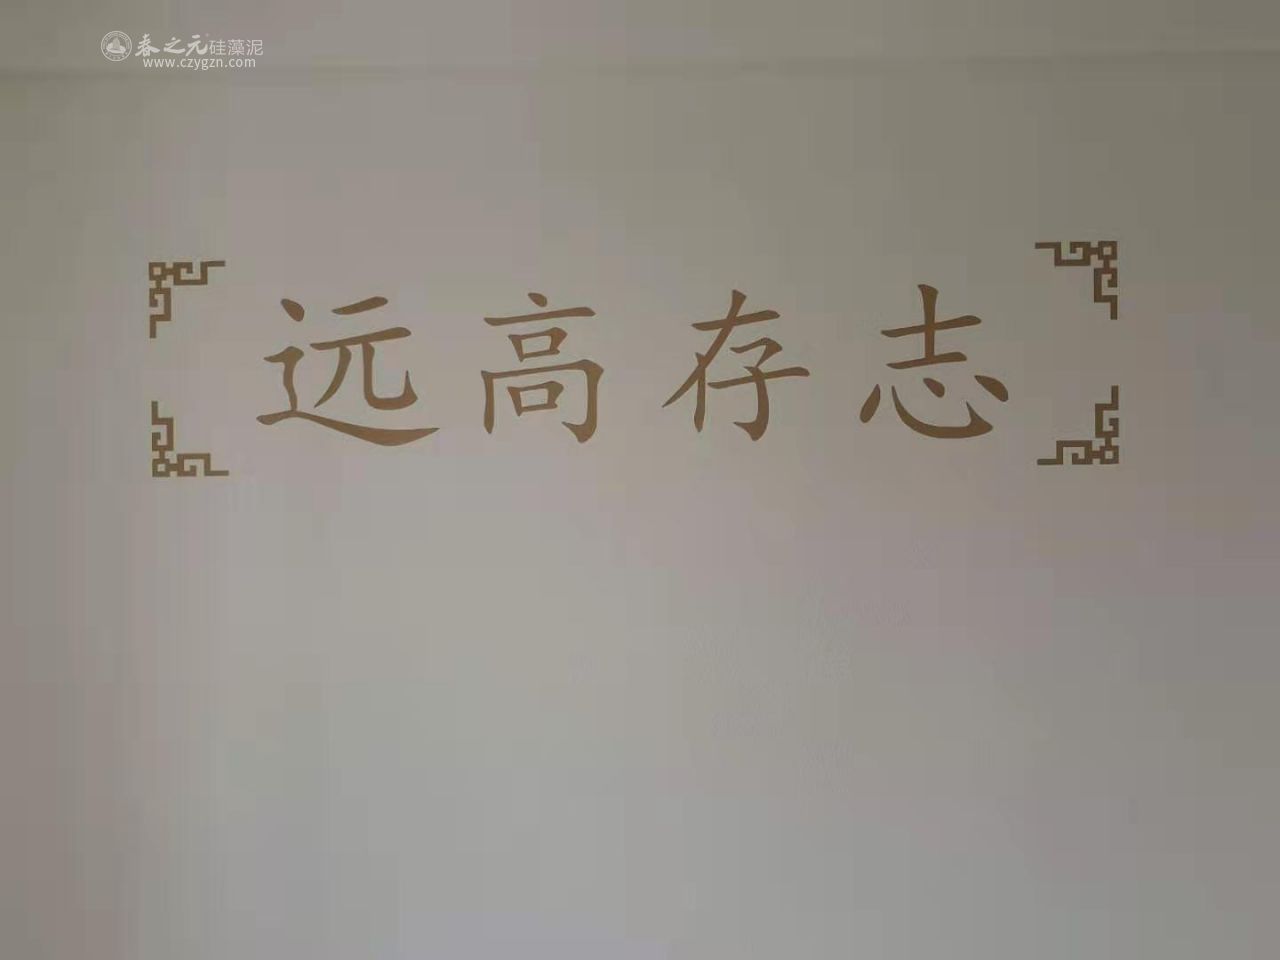 春之元硅藻泥
www.czygzn.com
志存高远